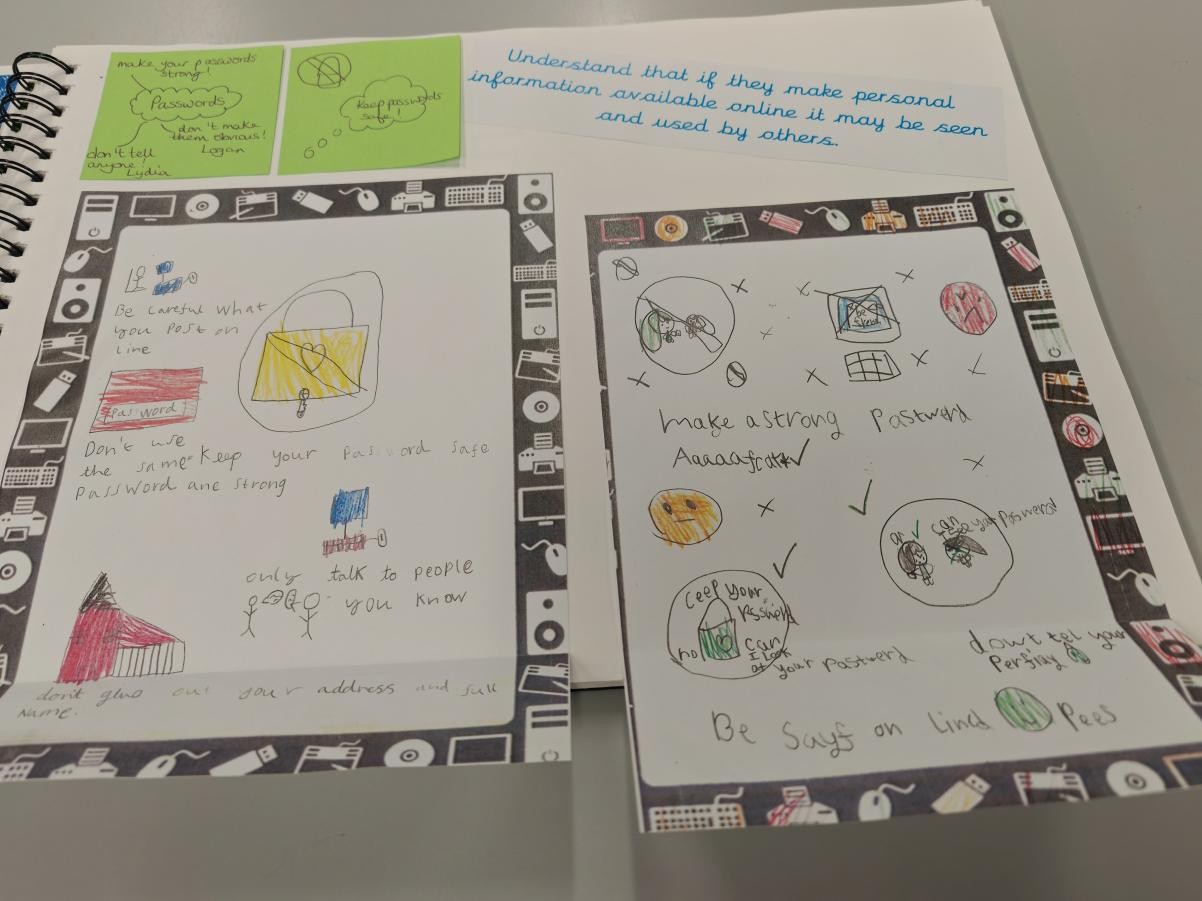 make your passwords
strong!
Passwords
don't make
them obvious!
Logan
don't tell
anyone!
Lydia
keep passwords
safe!
Understand that if they make personal
information available online it may be seen
and used by others.
Be careful what
you Post on
line
Password
Don't use
the same Keep your Password safe
Password are strong
only talk to people
you know
don't give out your address and full
Name.
make a strong Pastword
can
I see your Password
ceep your
no
can
I look
at your Pastword
don't tel your
Be Sayf on Lind Pees